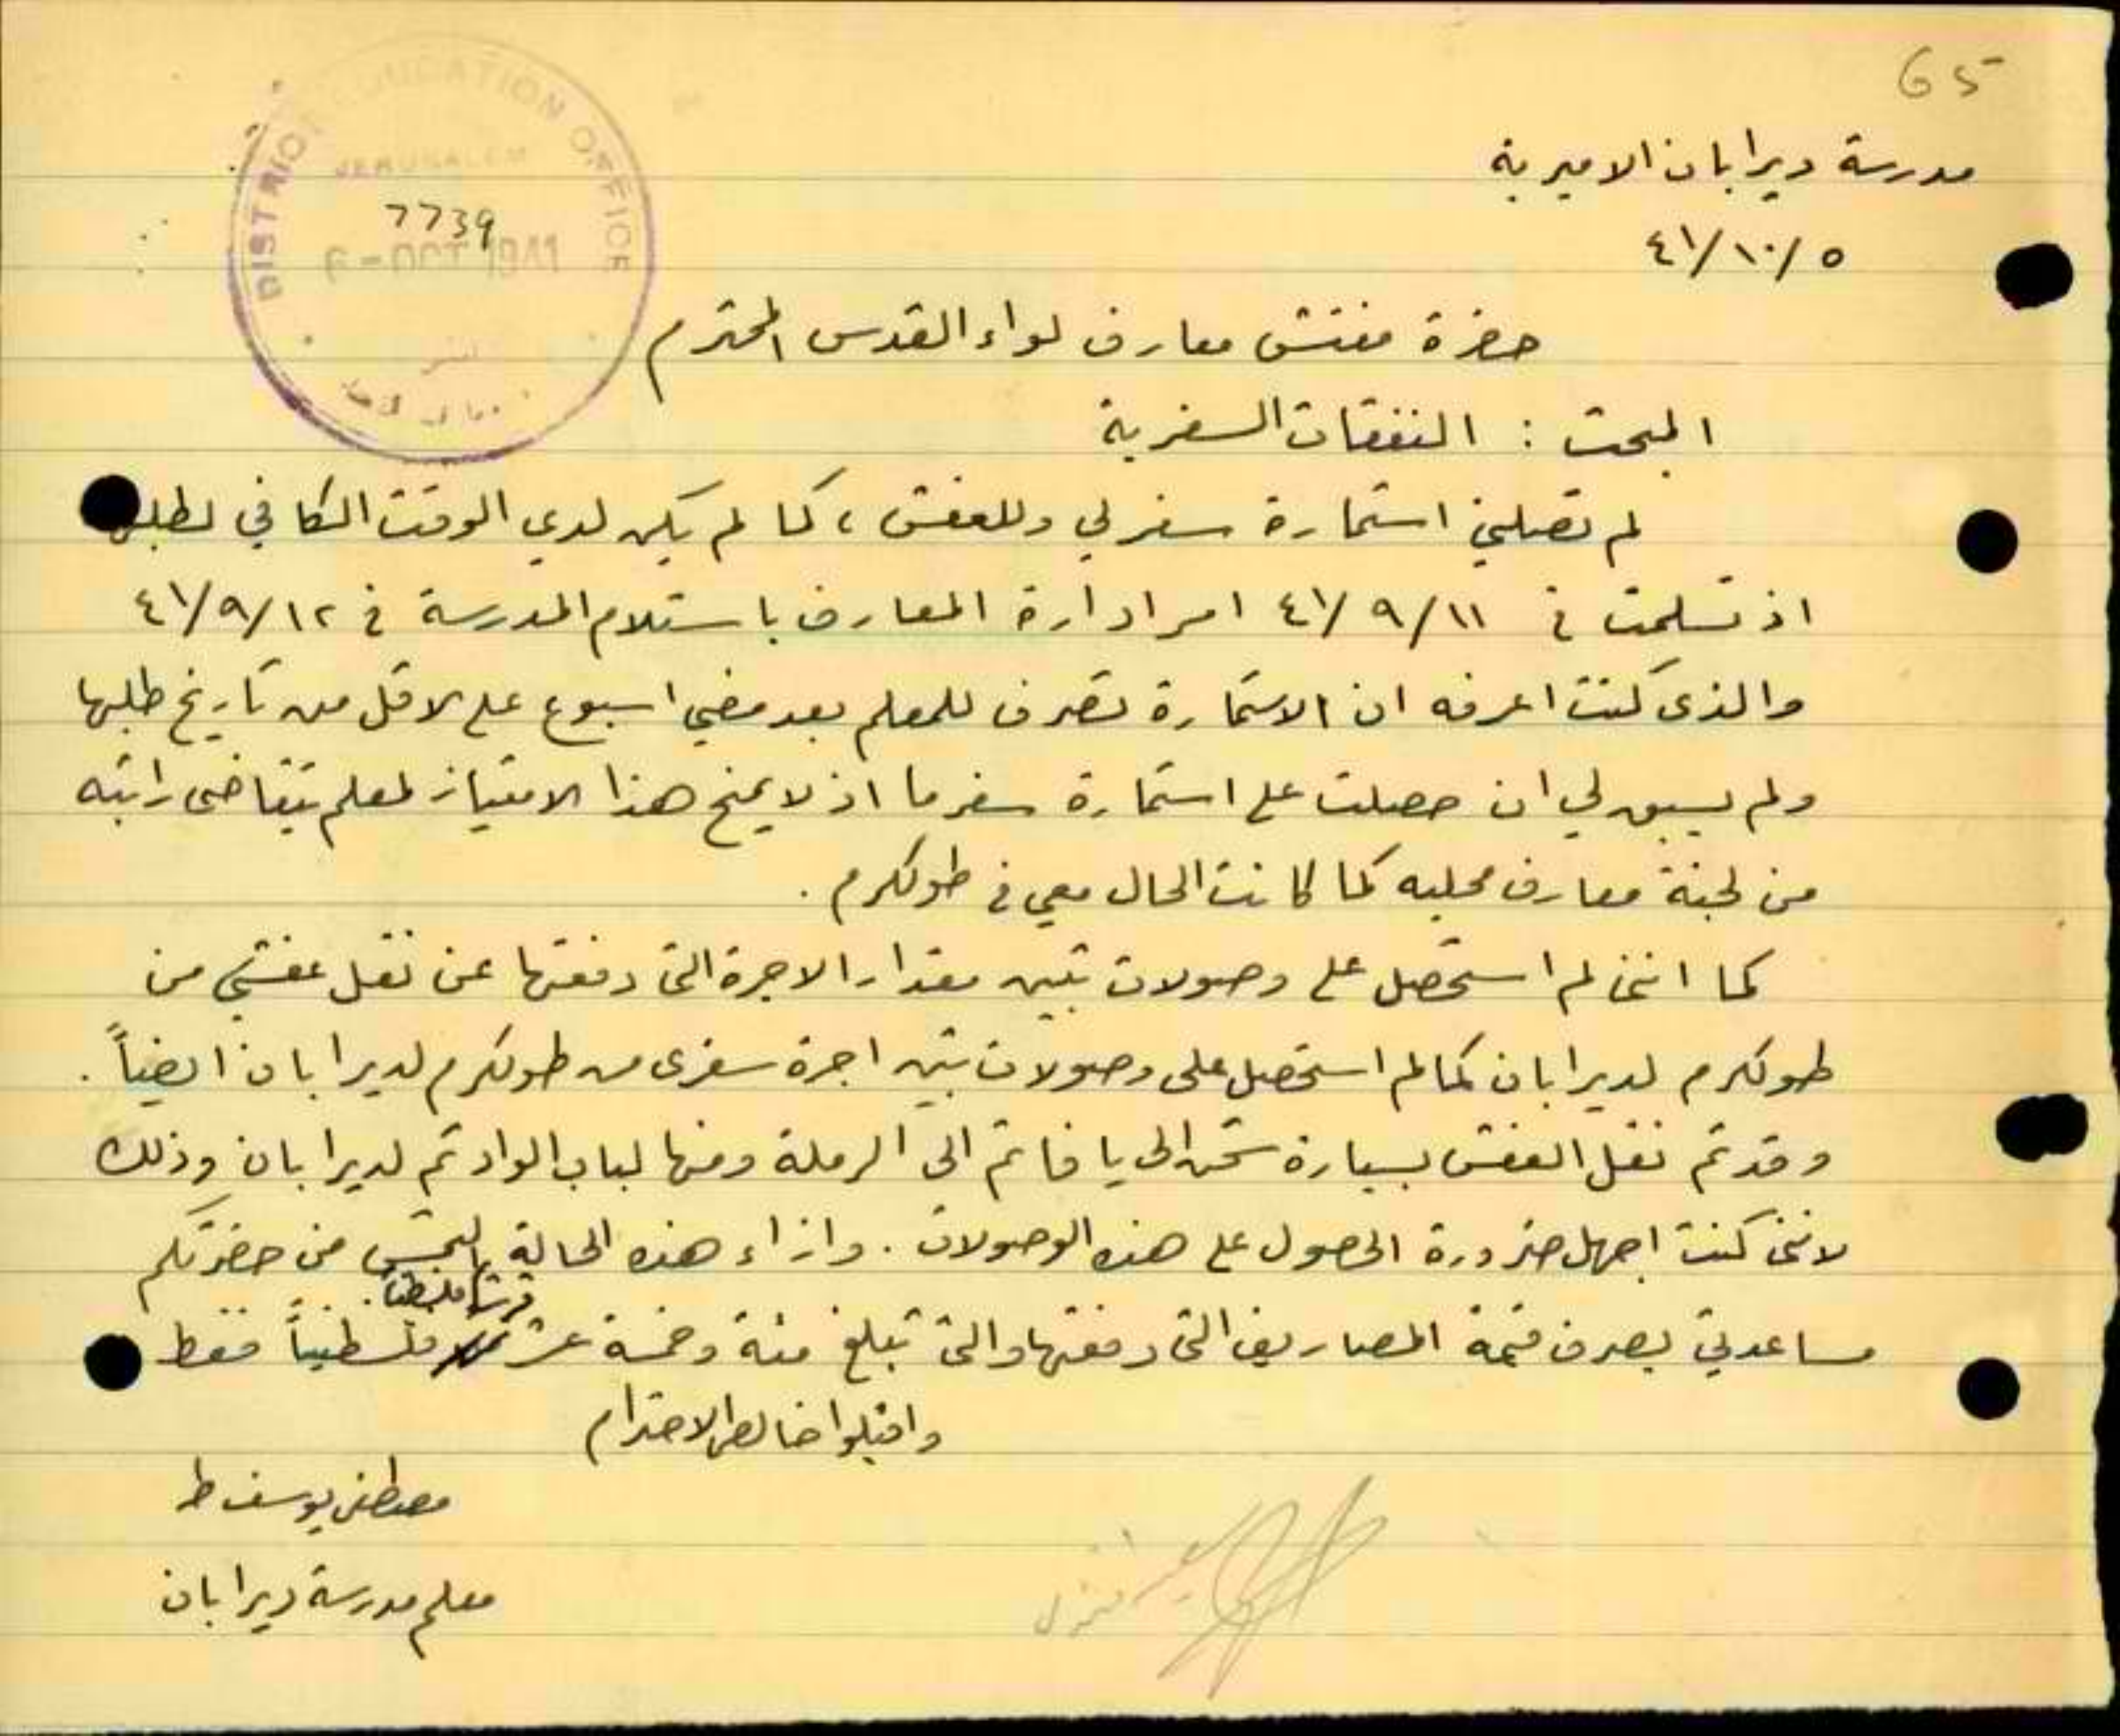 65
مدرسة ديرابان الاميرية
٤١/١٠/٥
DISTRICT EDUCATION OFFICE
JERUSALEM
7739
6 - OCT 1941
حضرة مفتش معارف لواء القدس المحترم
المبحث : النفقات السفرية
لم تصلني استمارة سفر لي وللعفش ، كما لم يكن لدي الوقت الكافي لطلبها
اذ تسلمت في ٤١/٩/١١ امر ادارة المعارف باستلام المدرسة في ٤١/٩/١٢
والذى كنت اعرفه ان الاستمارة تصرف للمعلم بعد مضي اسبوع على الاقل من تاريخ طلبها
ولم يسبق لي ان حصلت على استمارة سفر ما اذ لا يمنح هذا الامتياز لمعلم يتقاضى راتبه
من لجنة معارف محليه كما كانت الحال معي في طولكرم .
كما انني لم استحصل على وصولات تبين مقدار الاجرة التي دفعتها عن نقل عفشي من
طولكرم لديرابان كما لم استحصل على وصولات تبين اجرة سفرى من طولكرم لديرابان ايضاً .
وقد تم نقل العفش بسيارة شحن الى يافا ثم الى الرملة ومنها لباب الواد ثم لديرابان وذلك
لانني كنت اجهل ضرورة الحصول على هذه الوصولات . وازاء هذه الحالة التمس من حضرتكم
قرشا فلسطينيا .
مساعدتي بصرف قيمة المصاريف التي دفعتها والتي تبلغ مئة وخمسة عشر فلسطينياً فقط
واقبلوا خالص الاحترام
مصطفى يوسف طه
معلم مدرسة ديرابان